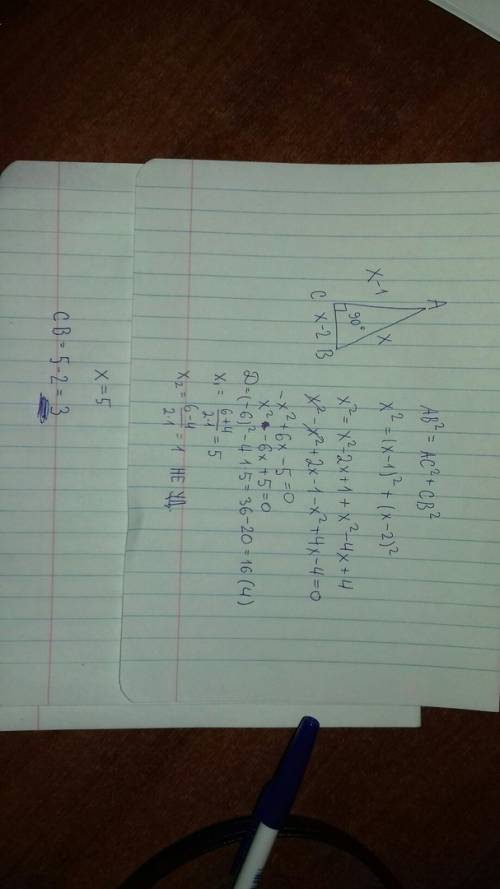 A
X-1
X
90°
C
X-2
B
AB² = AC² + CB²
X² = (x-1)² + (x-2)²
X² = X² - 2x + 1 + X² - 4x + 4
X² - X² + 2x - 1 - X² + 4x - 4 = 0
-X² + 6x - 5 = 0
X² - 6x + 5 = 0
D = (-6)² - 4·1·5 = 36 - 20 = 16 (4)
X₁ = (6+4)/(2·1) = 5
X₂ = (6-4)/(2·1) = 1 НЕ УД
X = 5
CB = 5 - 2 = 3